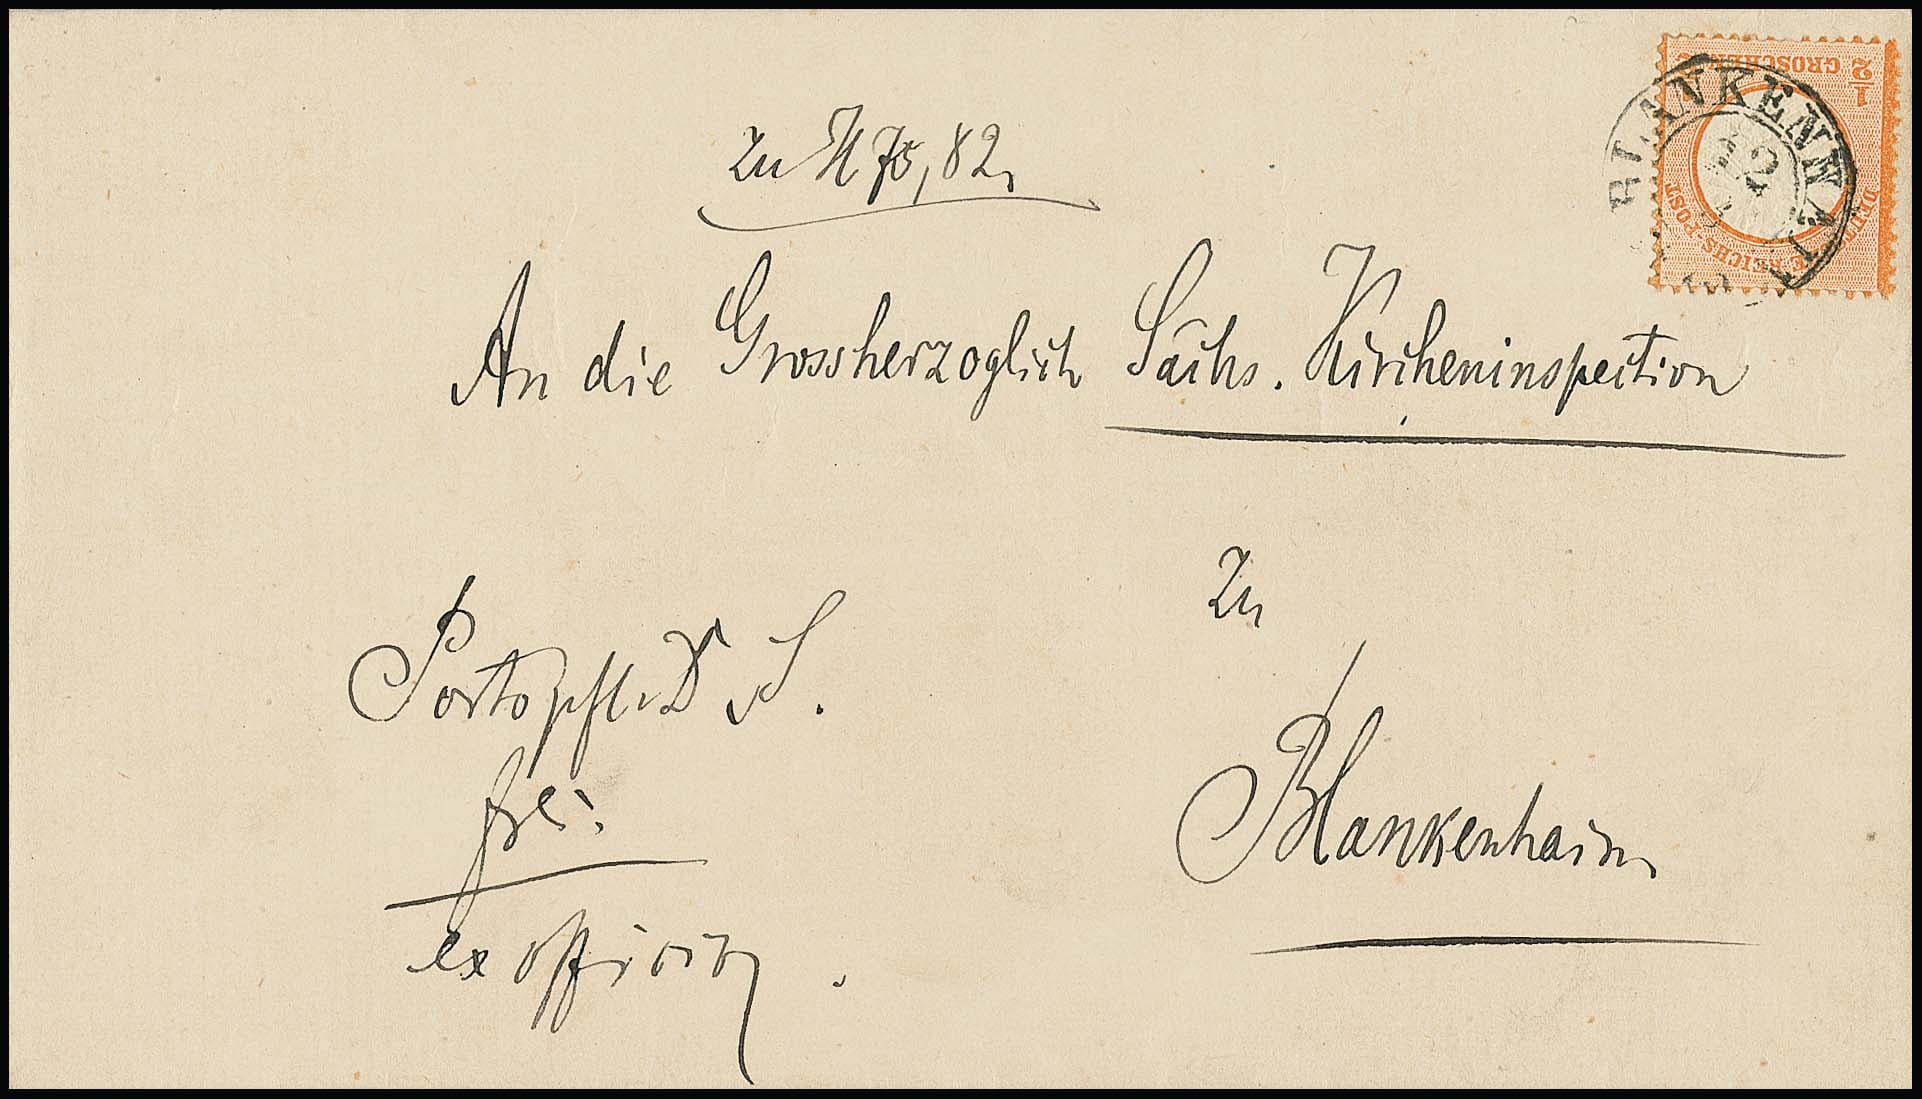 ½ GROSCHEN
DEUTSCHE REICHS-POST
BLANKENHAIN
zu H 75, 82.
An die Grossherzoglich Sächs. Kircheninspection
zu
Blankenhain
Portopfl. D. S.
frei
ex officio